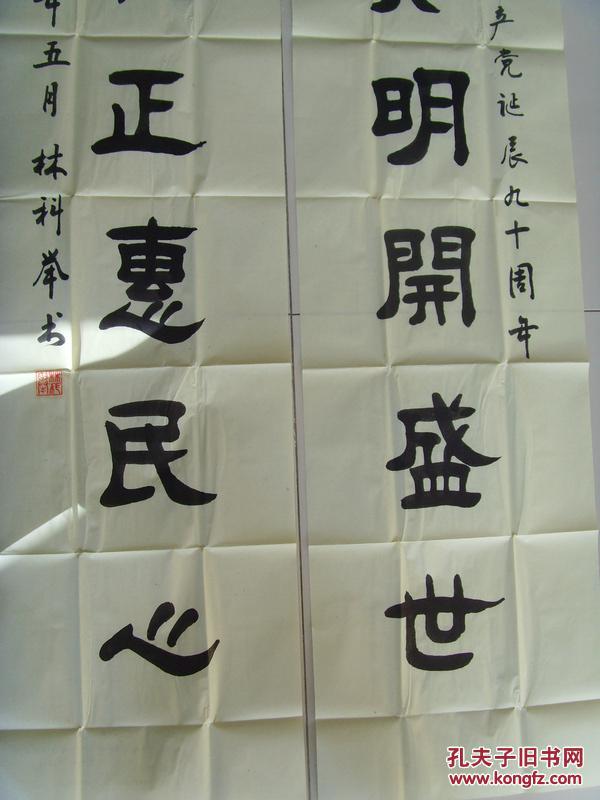 产党诞辰九十周年
明開盛世
正惠民心
年五月 林科举书
孔夫子旧书网
www.kongfz.com